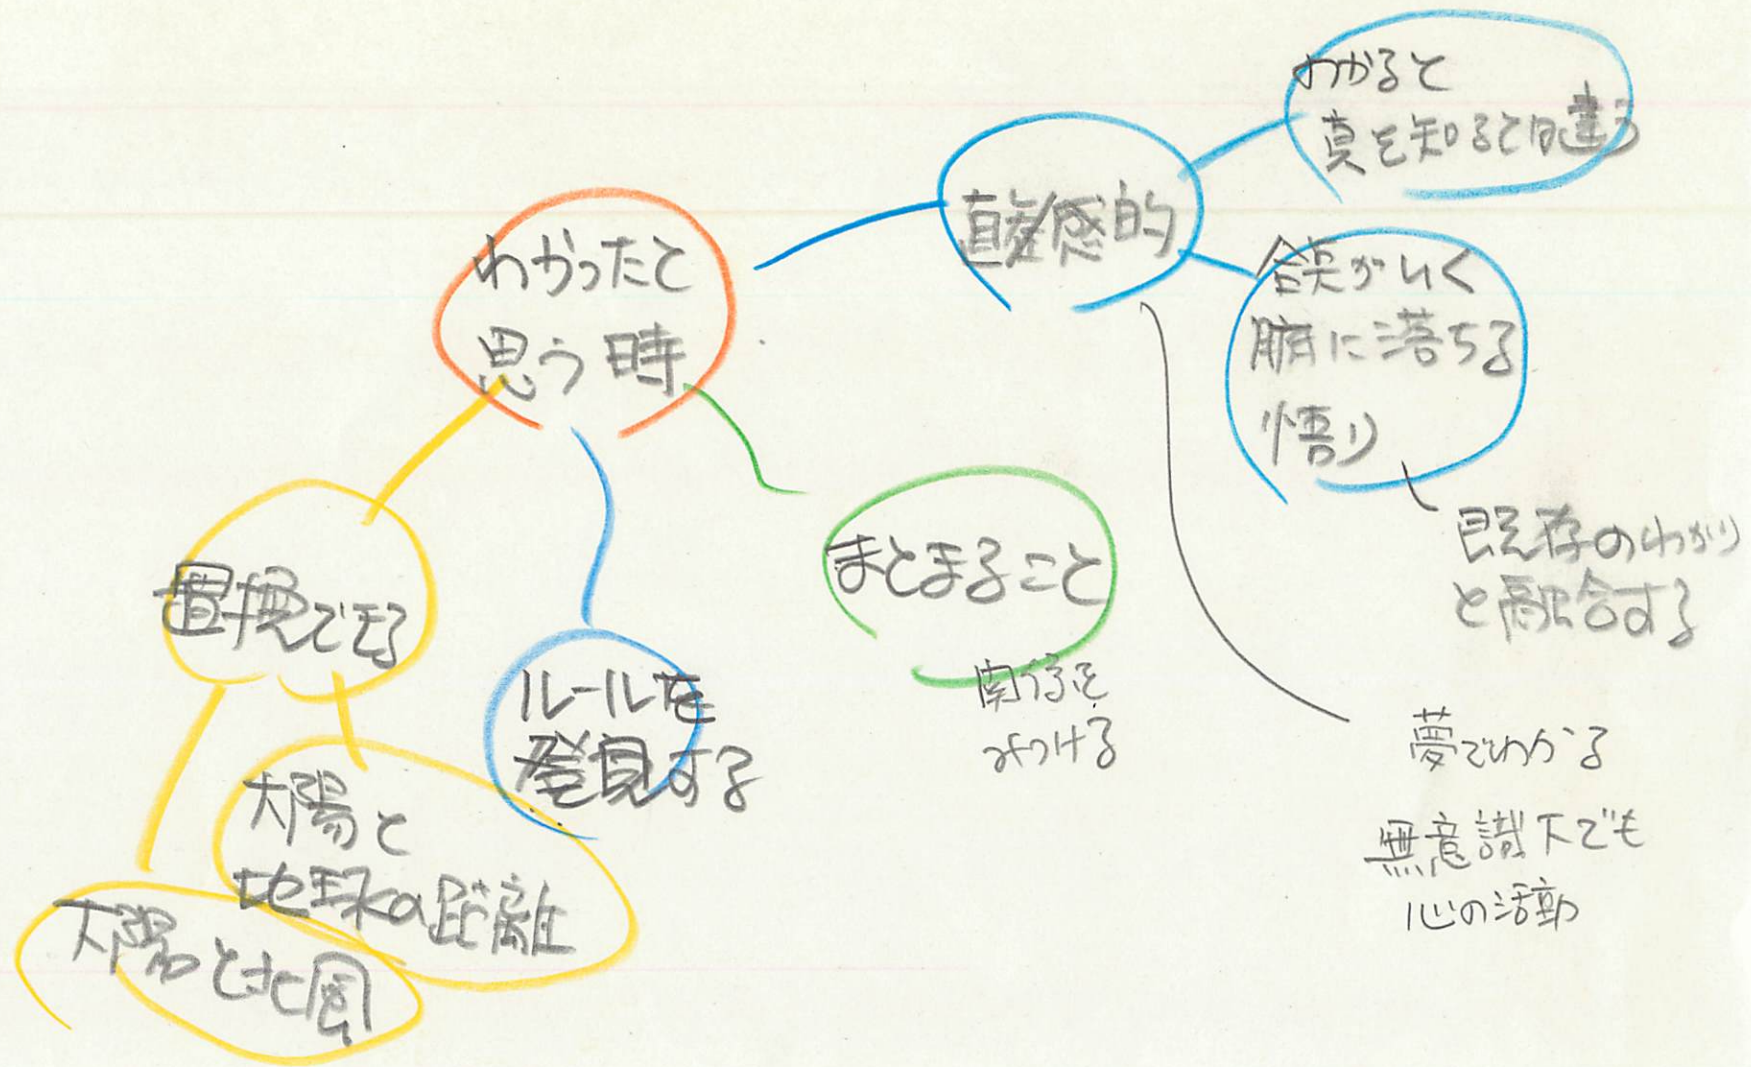 わかったと
思う時
直感的
わかると
真を知るとは違う
合点がいく
腑に落ちる
悟り
既存のわかり
と融合する
夢でわかる
無意識下でも
心の活動
まとまること
関係を
みつける
ルールを
発見する
置換できる
太陽と
地球の距離
太陽と北風